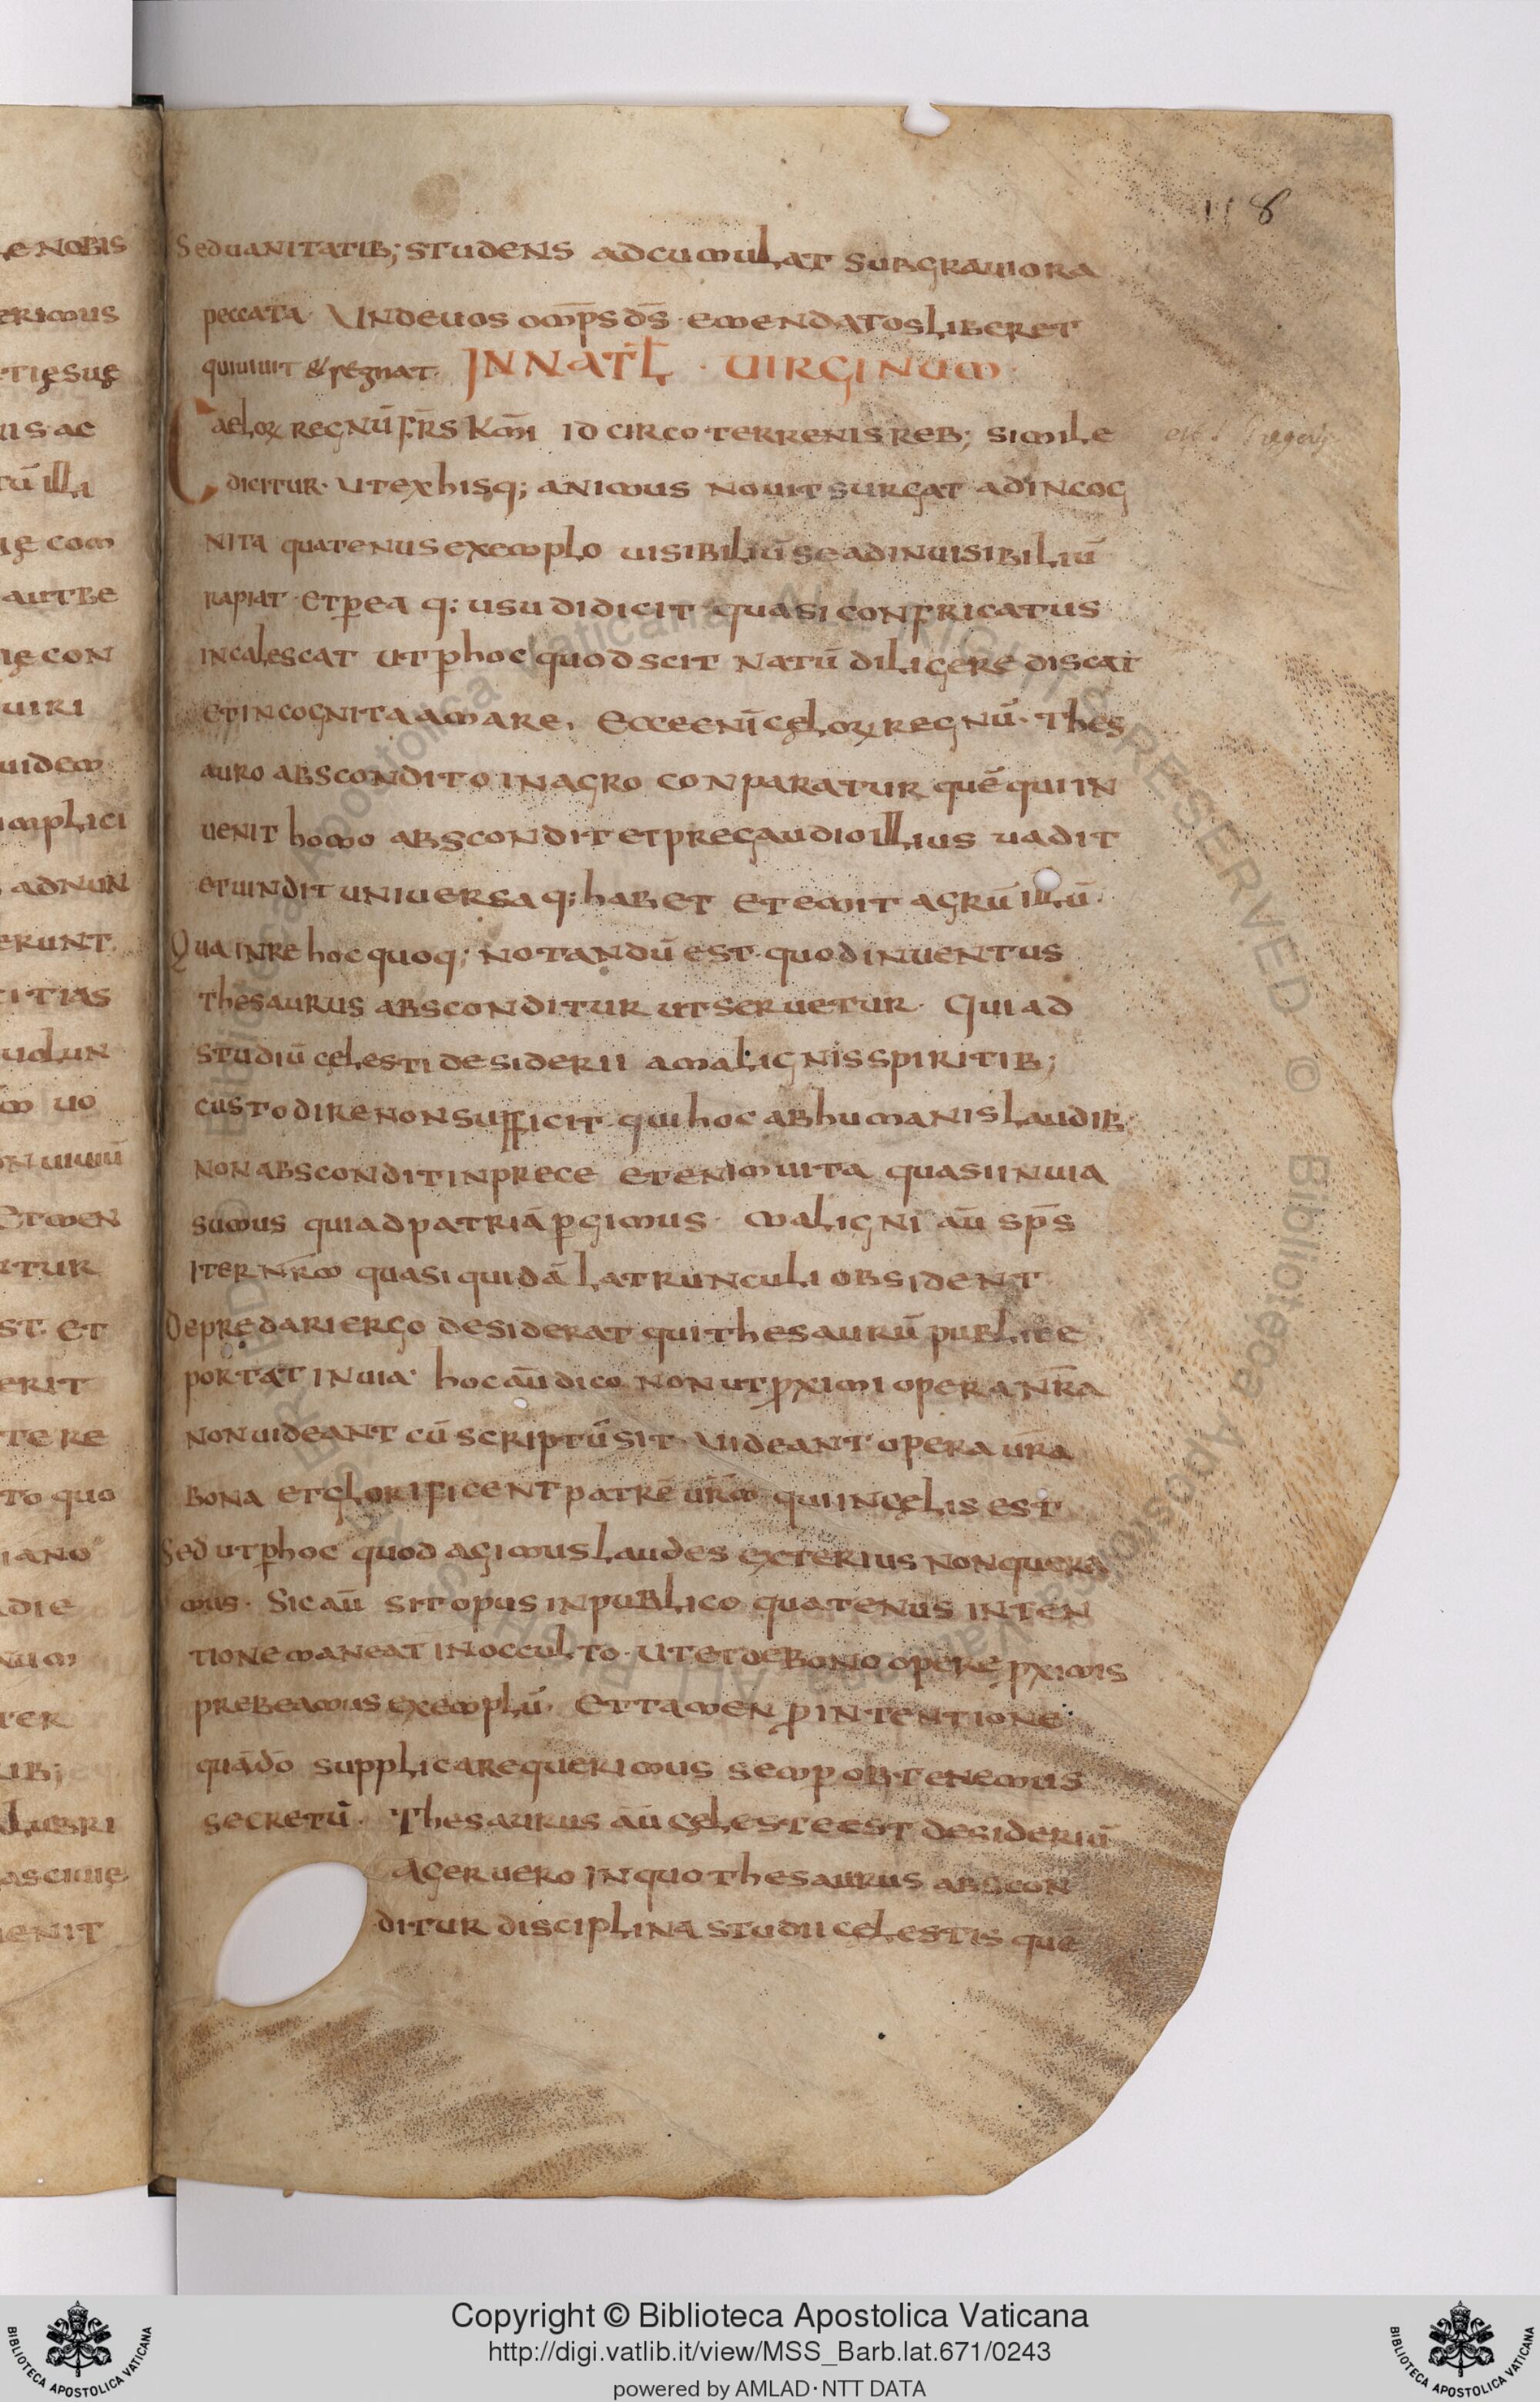 118
Sed uanitatib; studens adcumulat sub grauiora
peccata. Unde uos om̄ps d̄s emendatos liberet
qui uiuit & regnat. IN NAT̄L · UIRGINUM ·
Caeloꝝ regnū fr̄s km̄i idcirco terrenis reb; simile
dicitur. ut ex his q; animus nouit surgat ad incog
nita quatenus exemplo uisibiliū se ad inuisibiliū
rapiat. et ꝑ ea q; usu didicit quasi confricatus
incalescat ut ꝑ hoc quod scit natū diligere discat
et incognita amare, Ecce enī cęloꝝ regnū. Thes
auro abscondito in agro conparatur quē qui in
uenit homo abscondit et pre gaudio illius uadit
et uindit uniuersa q; habet et emit agrū illū.
Qua in re hoc quoq; notandū est. quod inuentus
thesaurus absconditur ut seruetur. Qui ad
studiū cęlesti desiderii a malignis spiritib;
custodire non sufficit. qui hoc ab humanis laudib;
non abscondit in prece etenim uita quasi in uia
sumus qui ad patriā ꝑgimus. maligni aū sp̄s
iter nr̄m quasi quidā latrunculi obsident
Depredari ergo desiderat qui thesaurū publice
portat in uia. hoc aū dico non ut ꝓximi opera nr̄a
non uideant cū scriptū sit. Uideant opera ur̄a
bona et glorificent patrē ur̄m qui in cęlis est
Sed ut ꝑ hoc quod agimus laudes exterius non quera
mus. Sic aū sit opus in publico quatenus inten
tione maneat in occulto. Ut et de bono opere ꝓximis
prebeamus exemplū. Et tamen ꝓ intentione
qua d̄o supplicare querimus semꝑ obtenemus
secretū. Thesaurus aū cęleste est desideriū
Ager uero in quo thesaurus abscon
ditur disciplina studii cęlestis quē
e nobis
erimus
tię suę
uis ac
tū illi
ię com
aut be
ię con
uiri
uidem
implici
adnun
erunt.
citias
uolun
m uo
Et men
itur
st. et
erit
tere
to quo
iano
die
ter
ib;
lubri
enit
Copyright © Biblioteca Apostolica Vaticana
http://digi.vatlib.it/view/MSS_Barb.lat.671/0243
powered by AMLAD·NTT DATA
BIBLIOTECA APOSTOLICA VATICANA
BIBLIOTECA APOSTOLICA VATICANA